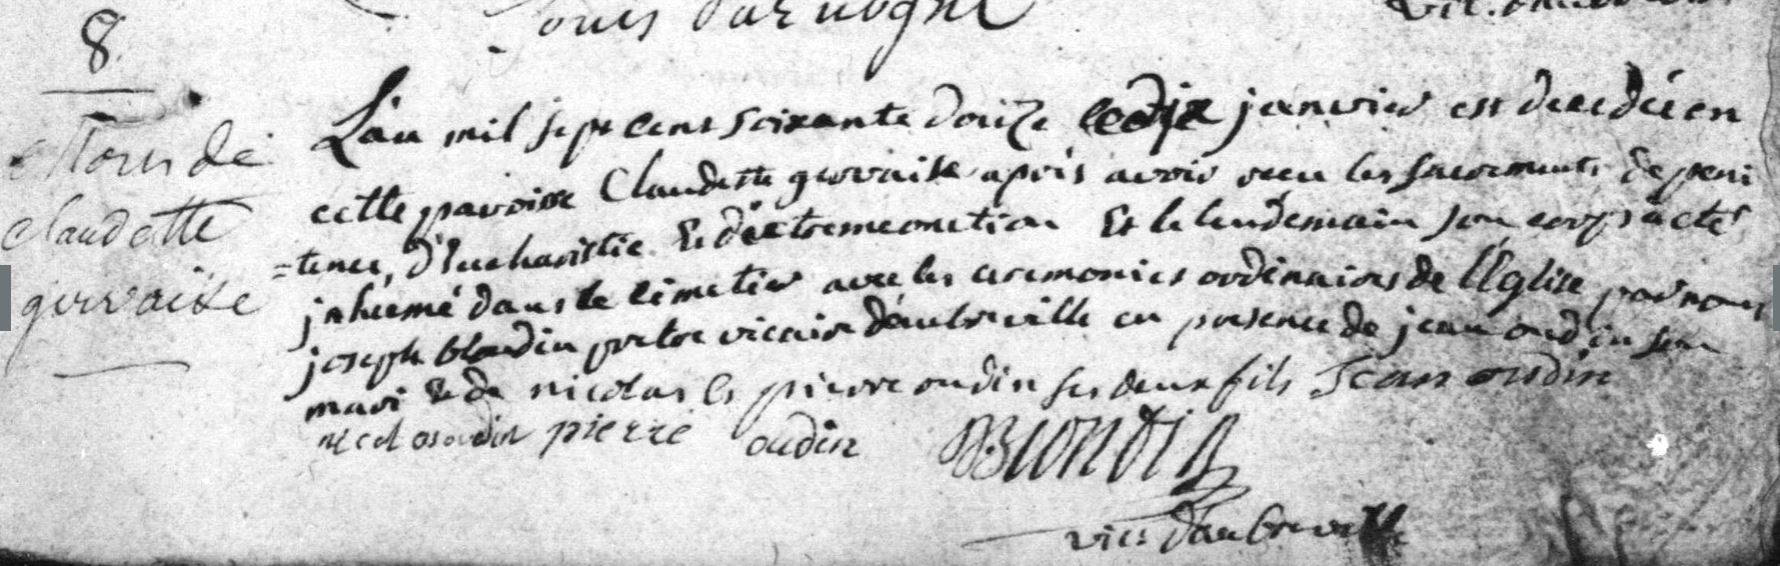 Louis
8
Mors de
claudette
gervaise
L'an mil sept cent soixante douze le dix janvier est decedée en
cette paroisse Claudette gervaise apris avoir recu les sacrements de peni
=tence, d'Eucharistie Et d'extremeonction Et le lendemain son corps a eté
jnhumé dans le cimetier avec les ceremonies ordinaires de l'Eglise par nous
joseph blondin pretre vicaire d'aubreville en presence de jean oudin son
mari et de nicolas Et pierre oudin ses deux fils Jean oudin
nicolas oudin pierre oudin Blondin
vic: d'aubreville